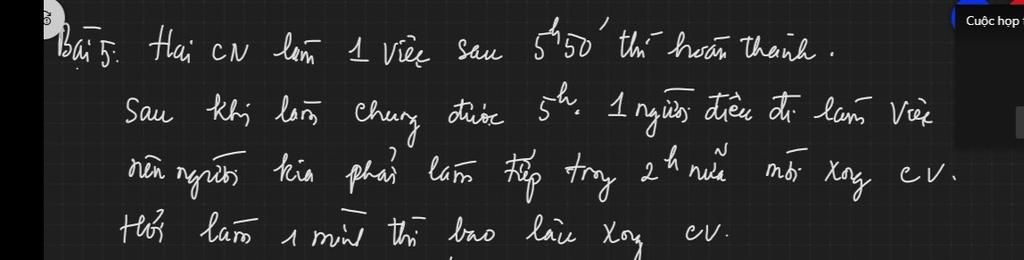 Cuộc họp
Bài 5: Hai CN làm 1 việc sau 5h50' thì hoàn thành.
Sau khi làm chung được 5h. 1 người điều đi làm việc
nên người kia phải làm tiếp trong 2h nữa mới xong CV.
Hỏi làm 1 mình thì bao lâu xong CV.